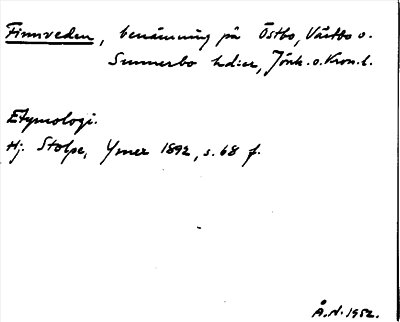 Finnveden, benämning på Östbo, Västbo o.
Sunnerbo hd:er, Jönk. o. Kron. l.
Etymologi.
Hj. Stolpe, Ymer 1892, s. 68 f.
Å.N. 1952.